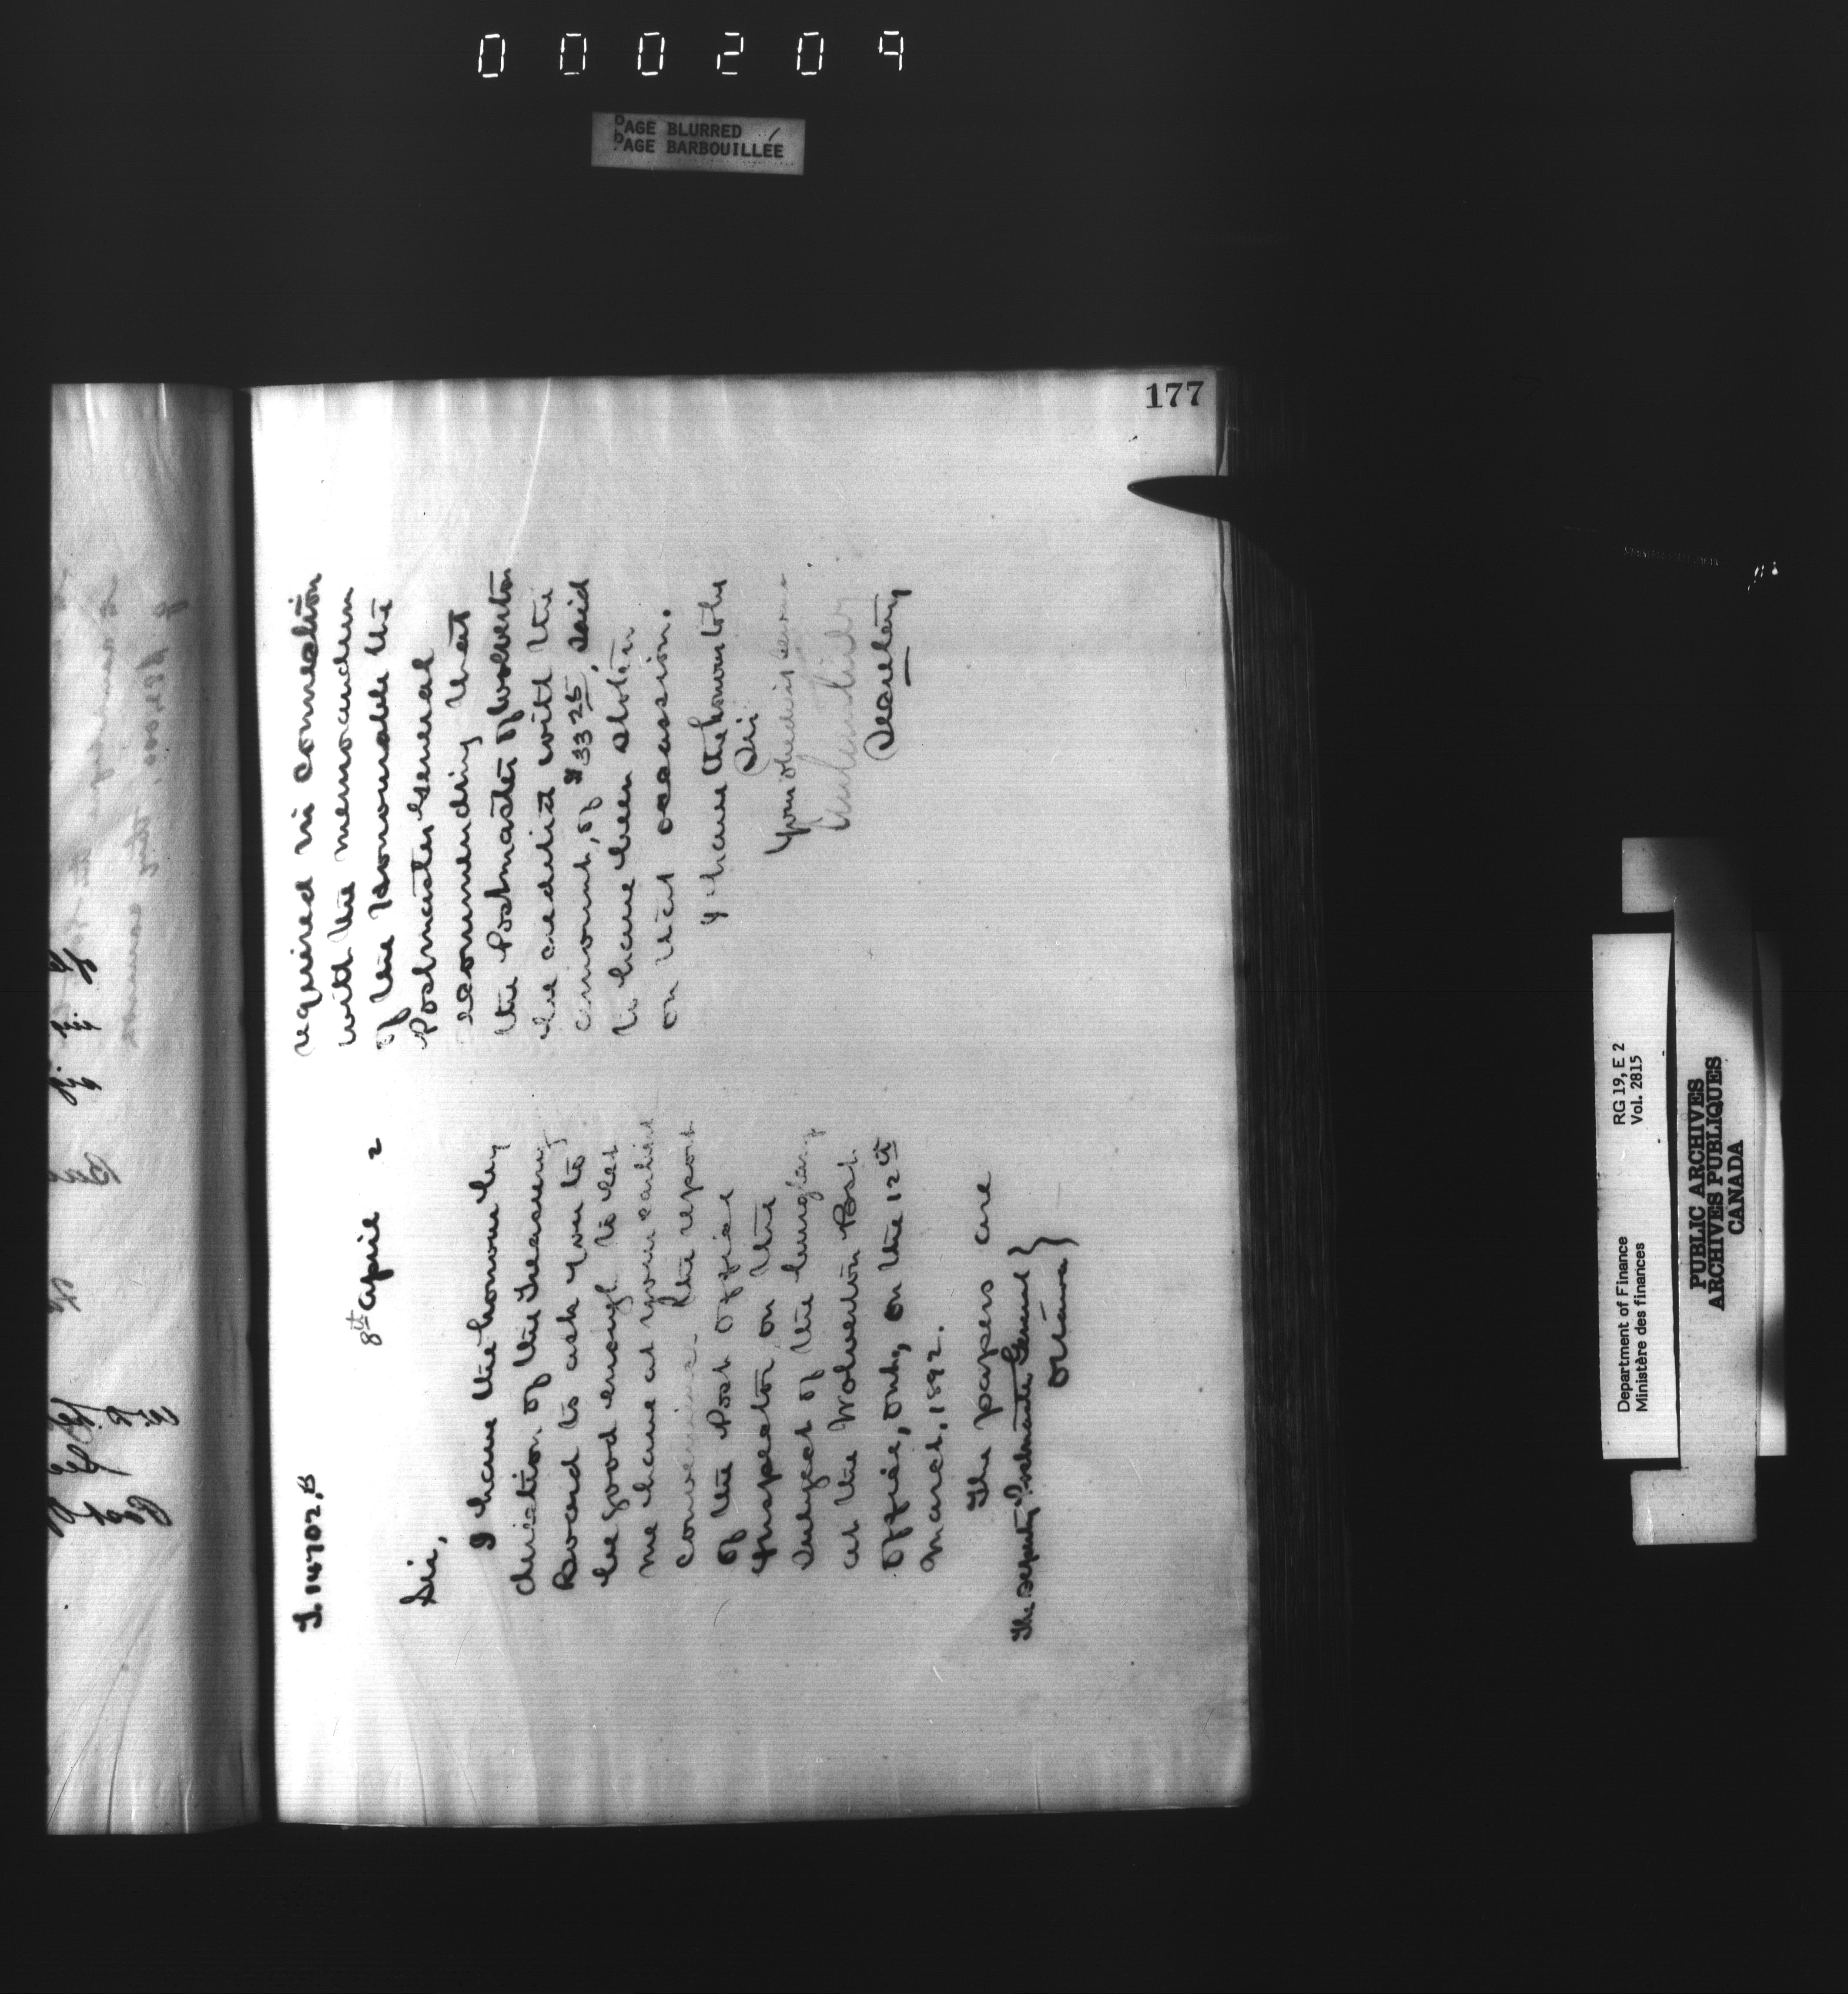 000209
PAGE BLURRED
PAGE BARBOUILLÉE
177
T. 14702, B
8th April 2
Sir,
I have the honour by
direction of the Treasury
Board to ask you to
be good enough to let
me have at your earliest
convenience the report
of the Post Office
Inspector, on the
subject of the burglary
at the Wolverton Post
Office, Ont., on the 12th
March, 1892.
The papers are
The Deputy Postmaster General }
Ottawa }
required in connection
with the memorandum
of the Honourable the
Postmaster General
recommending that
the Postmaster of Wolverton
be credited with the
amount, of $33 25, said
to have been stolen
on that occasion.
I have the honour to be
Sir
Your obedient servant
Secretary
Department of Finance
Ministère des finances
RG 19, E 2
Vol. 2815
PUBLIC ARCHIVES
ARCHIVES PUBLIQUES
CANADA